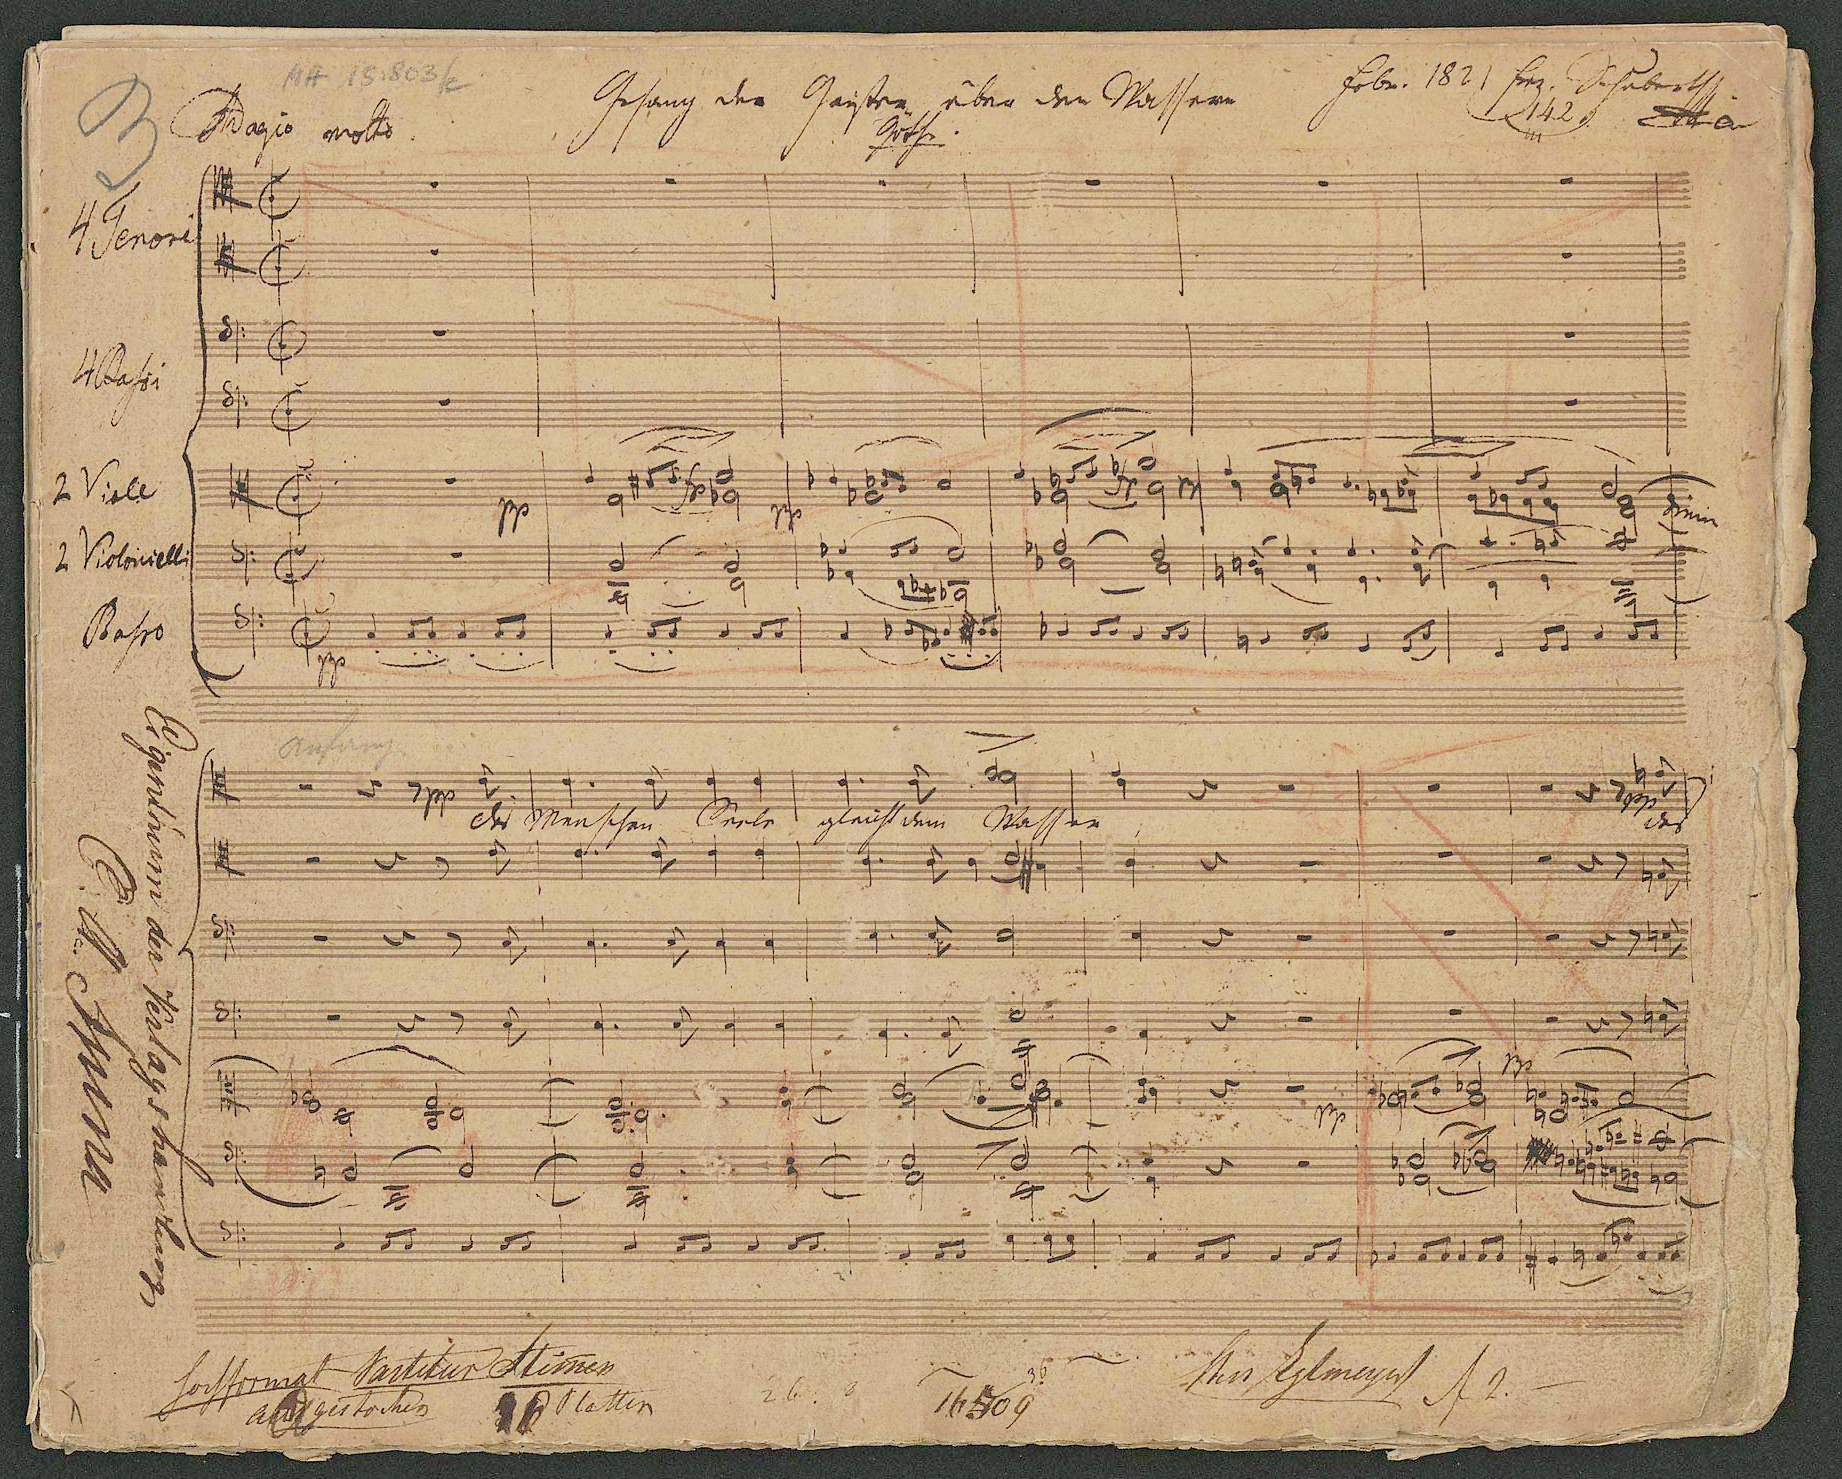 MH 15.803/c
3
Gesang der Geister über den Wassern
Febr. 1821 frz. Schubert
142
Adagio molto
Göthe.
4 Tenori
4 Bassi
2 Viole
pp
fp
pp
fp
pp
dimin
2 Violoncelli
Basso
pp
Anfang
pp
pp
des Menschen Seele gleicht dem Wasser
des
pp
pp
Eigenthum der Verlagshandlung
C. A. Spina
Hochformat Partitur Stimen
ausgestochen
Platten
26.
16509
36
No 2.